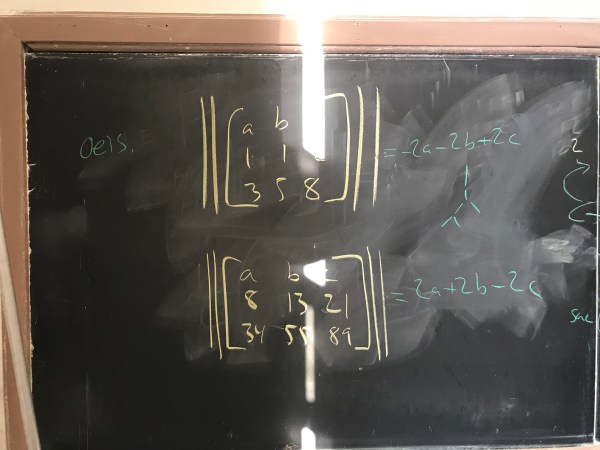 oeis.
a b
1 1
3 5 8
= -2a-2b+2c
a b
8 13 21
34 55 89
= 2a+2b-2c
2
sac